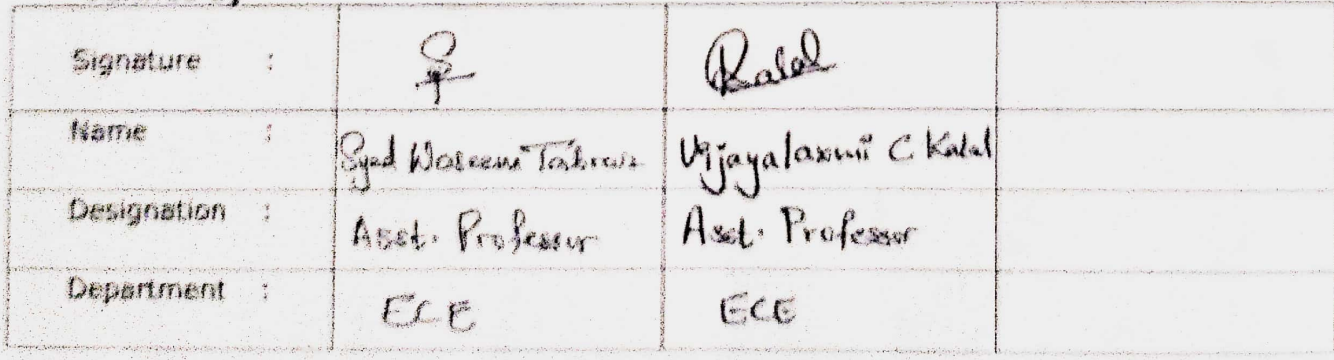 Signature : Kalal
Name : Syed Waseem Tabrez Vijayalaxmi C Kalal
Designation : Asst. Professor Asst. Professor
Department : ECE ECE